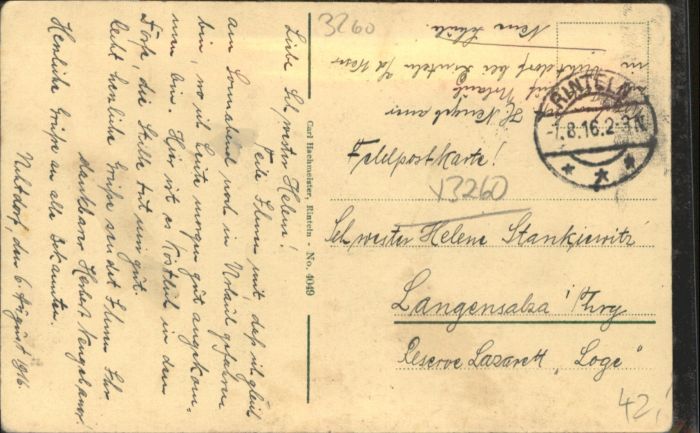 Liebe Schwester Helene!
Teile Ihnen mit, daß ich gleich
am Sonnabend noch in Urlaub gefahren
bin, wo ich heute morgen gut angekom-
men bin. Hier ist es köstlich in dem
Forst, die Stille tut mir gut.
Recht herzliche Grüße sendet Ihnen Ihr
dankbarer Herbert
Herzliche Grüße an alle Bekannten.
dorf, den 6. August 1916.
Carl Hachmeister, Rinteln - No. 4049
3260
Neue
in dorf bei Rinteln a/d Weser
Urlaub
RINTELN
-7.8.16.2-3N.
Feldpostkarte!
13260
Schwester Helene Stankiewitz
Langensalza i/Thrg
Reserve Lazarett „Loge"
42,